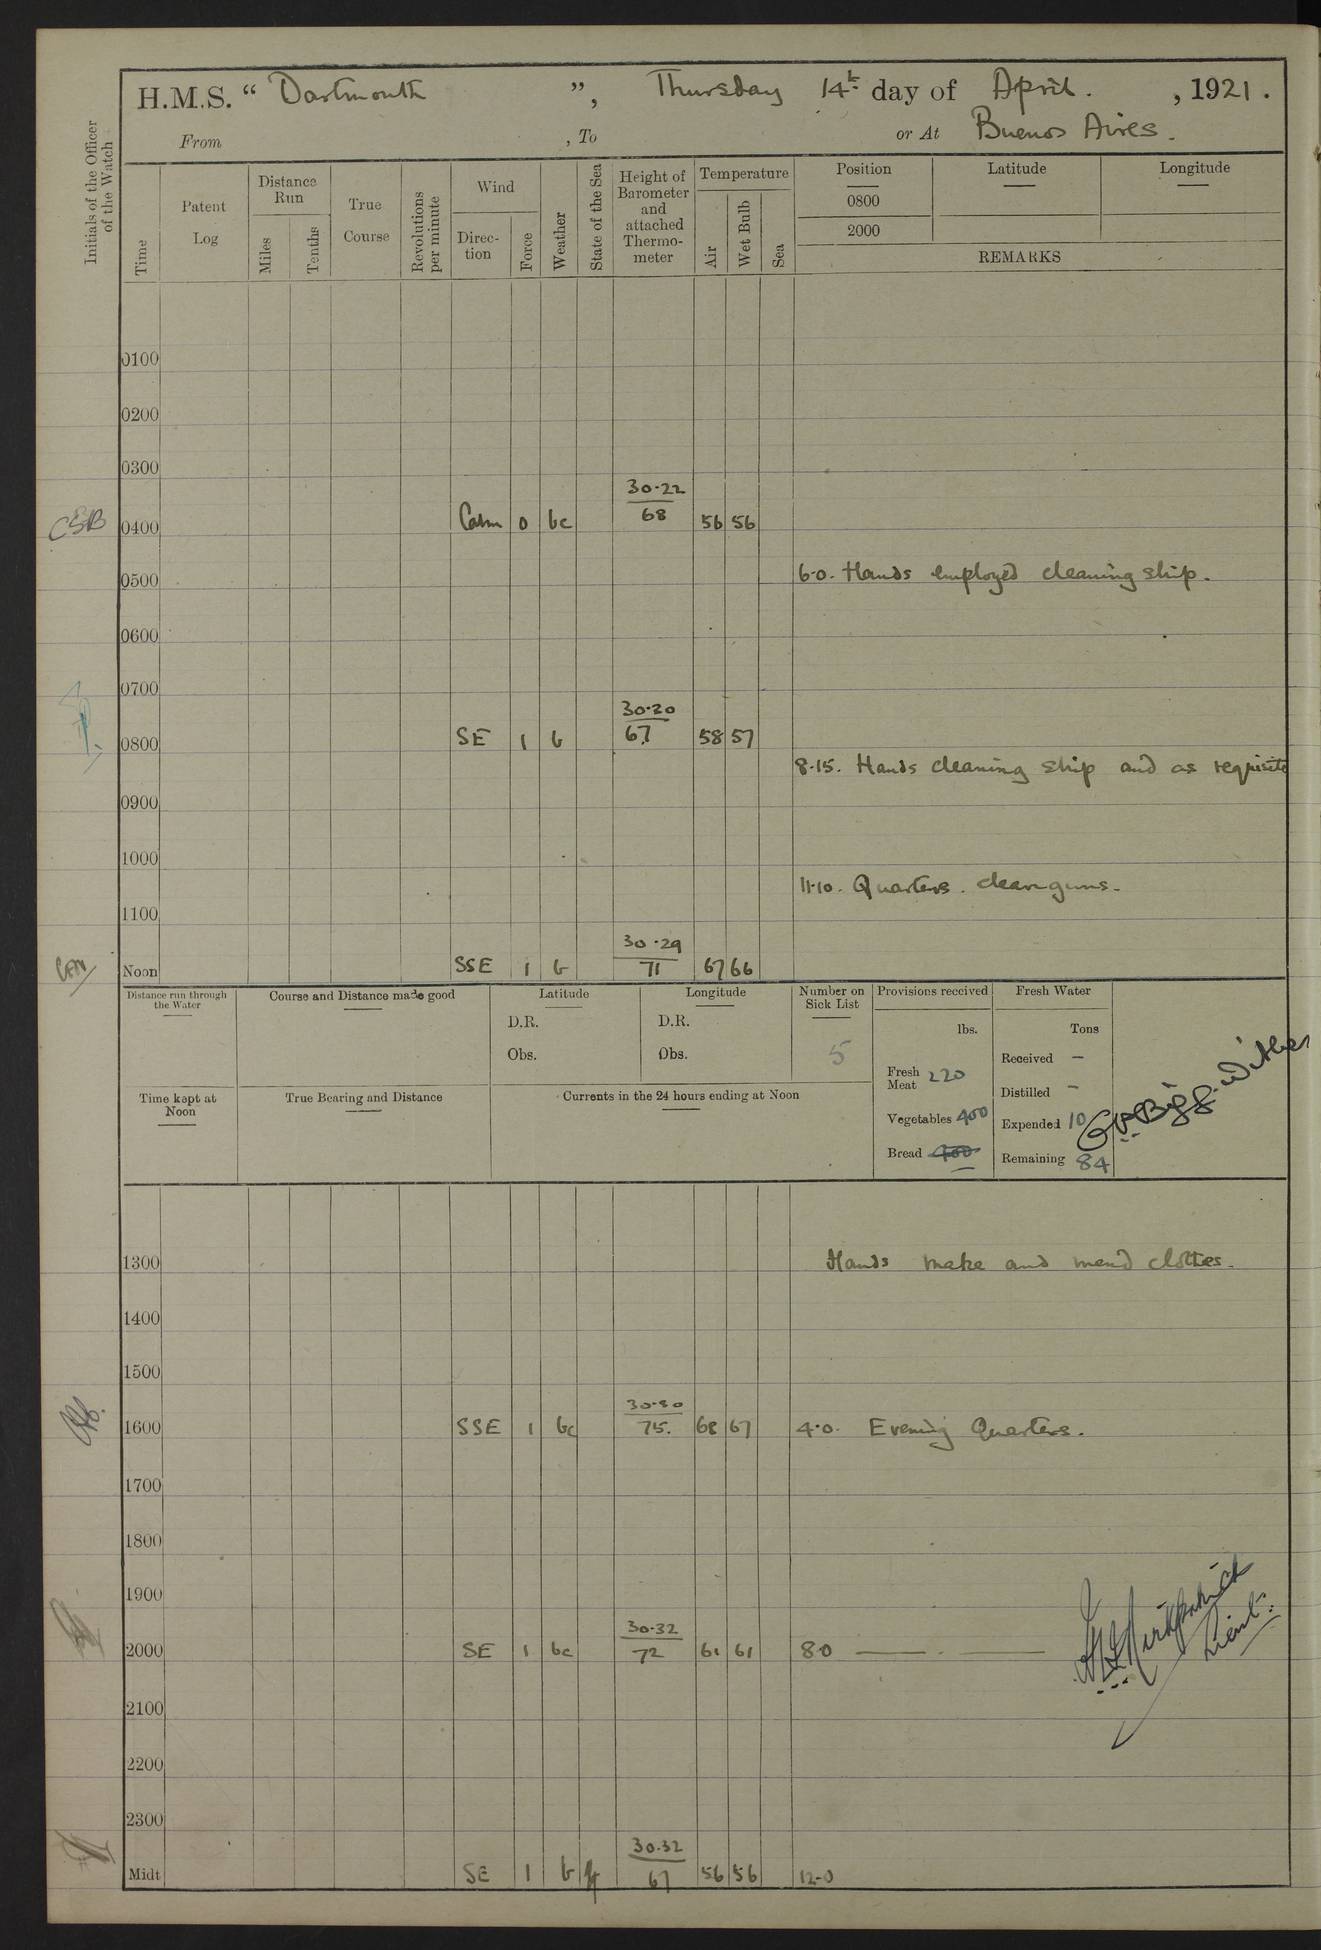 H.M.S. “ Dartmouth ”, Thursday 14th day of April. , 1921.
From , To or At Buenos Aires.
Initials of the Officer of the Watch
Time
Patent Log
Distance Run
Miles
Tenths
True Course
Revolutions per minute
Wind
Direc-tion
Force
Weather
State of the Sea
Height of Barometer and attached Thermo-meter
Temperature
Air
Wet Bulb
Sea
Position Latitude Longitude
0800
2000
REMARKS
0100
0200
0300
30.22
CSB 0400 Calm 0 bc 68 56 56
6.0. Hands employed cleaning ship.
0500
0600
0700
30.20
0800 SE 1 b 67. 58 57
8.15. Hands cleaning ship and as requisite
0900
1000
11.10. Quarters. clean guns.
1100
30.29
Noon SSE 1 b 71 67 66
Distance run through the Water
Course and Distance made good
Latitude
Longitude
Number on Sick List
Provisions received
Fresh Water
D.R. D.R. lbs. Tons
Obs. Obs. 5
Received –
Fresh Meat 220
Distilled –
Time kept at Noon
True Bearing and Distance
Currents in the 24 hours ending at Noon
Vegetables 400
Expended 10
Bread 400
Remaining 84
Bigg-Wither
1300 Hands make and mend clothes.
1400
1500
30.30
1600 SSE 1 bc 75. 68 67 4.0. Evening Quarters.
1700
1800
1900
30.32
2000 SE 1 bc 72 61 61 8.0
Kirkpatrick
Lieut.
2100
2200
2300
30.32
Midt SE 1 b 67 56 56 12.0